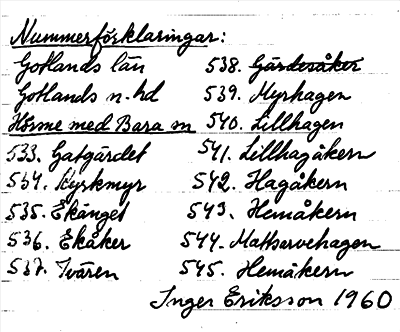 Nummerförklaringar:
Gotlands län
Gotlands n. hd
Hörsne med Bara sn
533. Gatgärdet
534. Kyrkmyr
535. Ekänget
536. Ekåker
537. Tvären
538. Gärdesåker
539. Myrhagen
540. Lillhagen
541. Lillhagåkern
542. Hagåkern
543. Hemåkern
544. Mattsarvehagen
545. Hemåkern
Inger Eriksson 1960